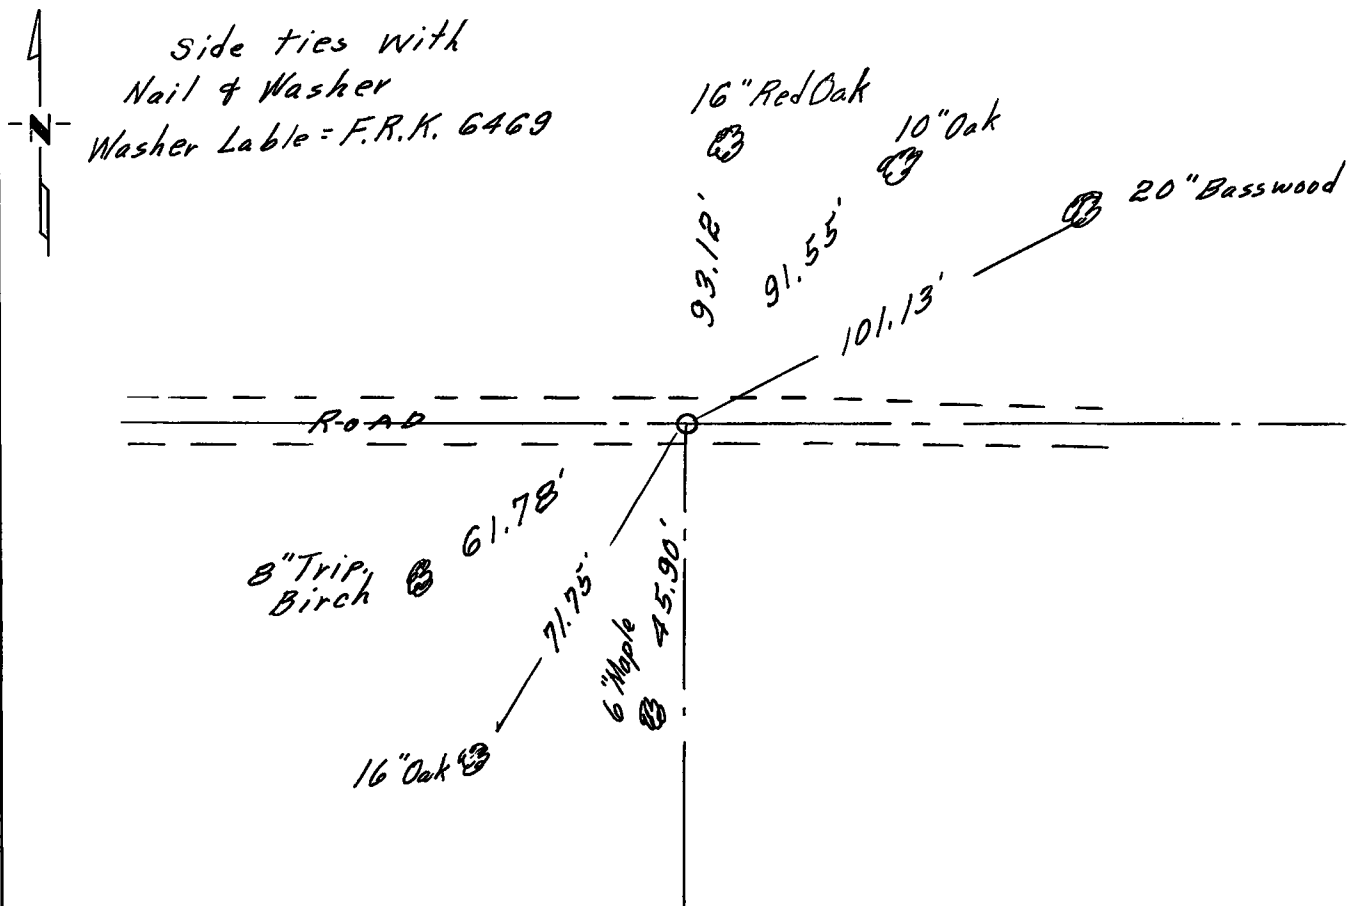 Side ties with
Nail & Washer
Washer Lable = F.R.K. 6469
N
16" Red Oak
10" Oak
20" Basswood
93.12'
91.55'
101.13'
ROAD
61.78'
8" Trip.
Birch
71.75'
45.90'
6" Maple
16" Oak